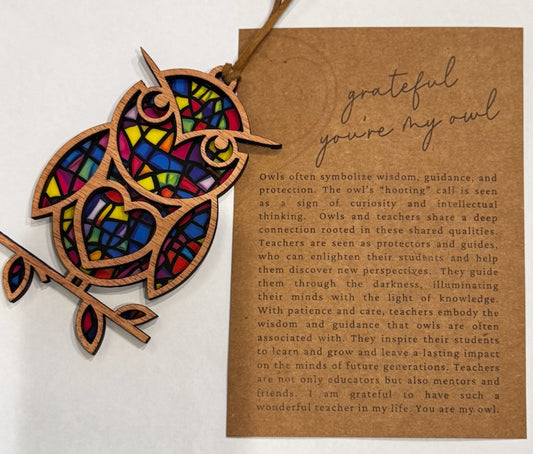 grateful
you're my owl
Owls often symbolize wisdom, guidance, and
protection. The owl's "hooting" call is seen
as a sign of curiosity and intellectual
thinking. Owls and teachers share a deep
connection rooted in these shared qualities.
Teachers are seen as protectors and guides,
who can enlighten their students and help
them discover new perspectives. They guide
them through the darkness, illuminating
their minds with the light of knowledge.
With patience and care, teachers embody the
wisdom and guidance that owls are often
associated with. They inspire their students
to learn and grow and leave a lasting impact
on the minds of future generations. Teachers
are not only educators but also mentors and
friends. I am grateful to have such a
wonderful teacher in my life. You are my owl.